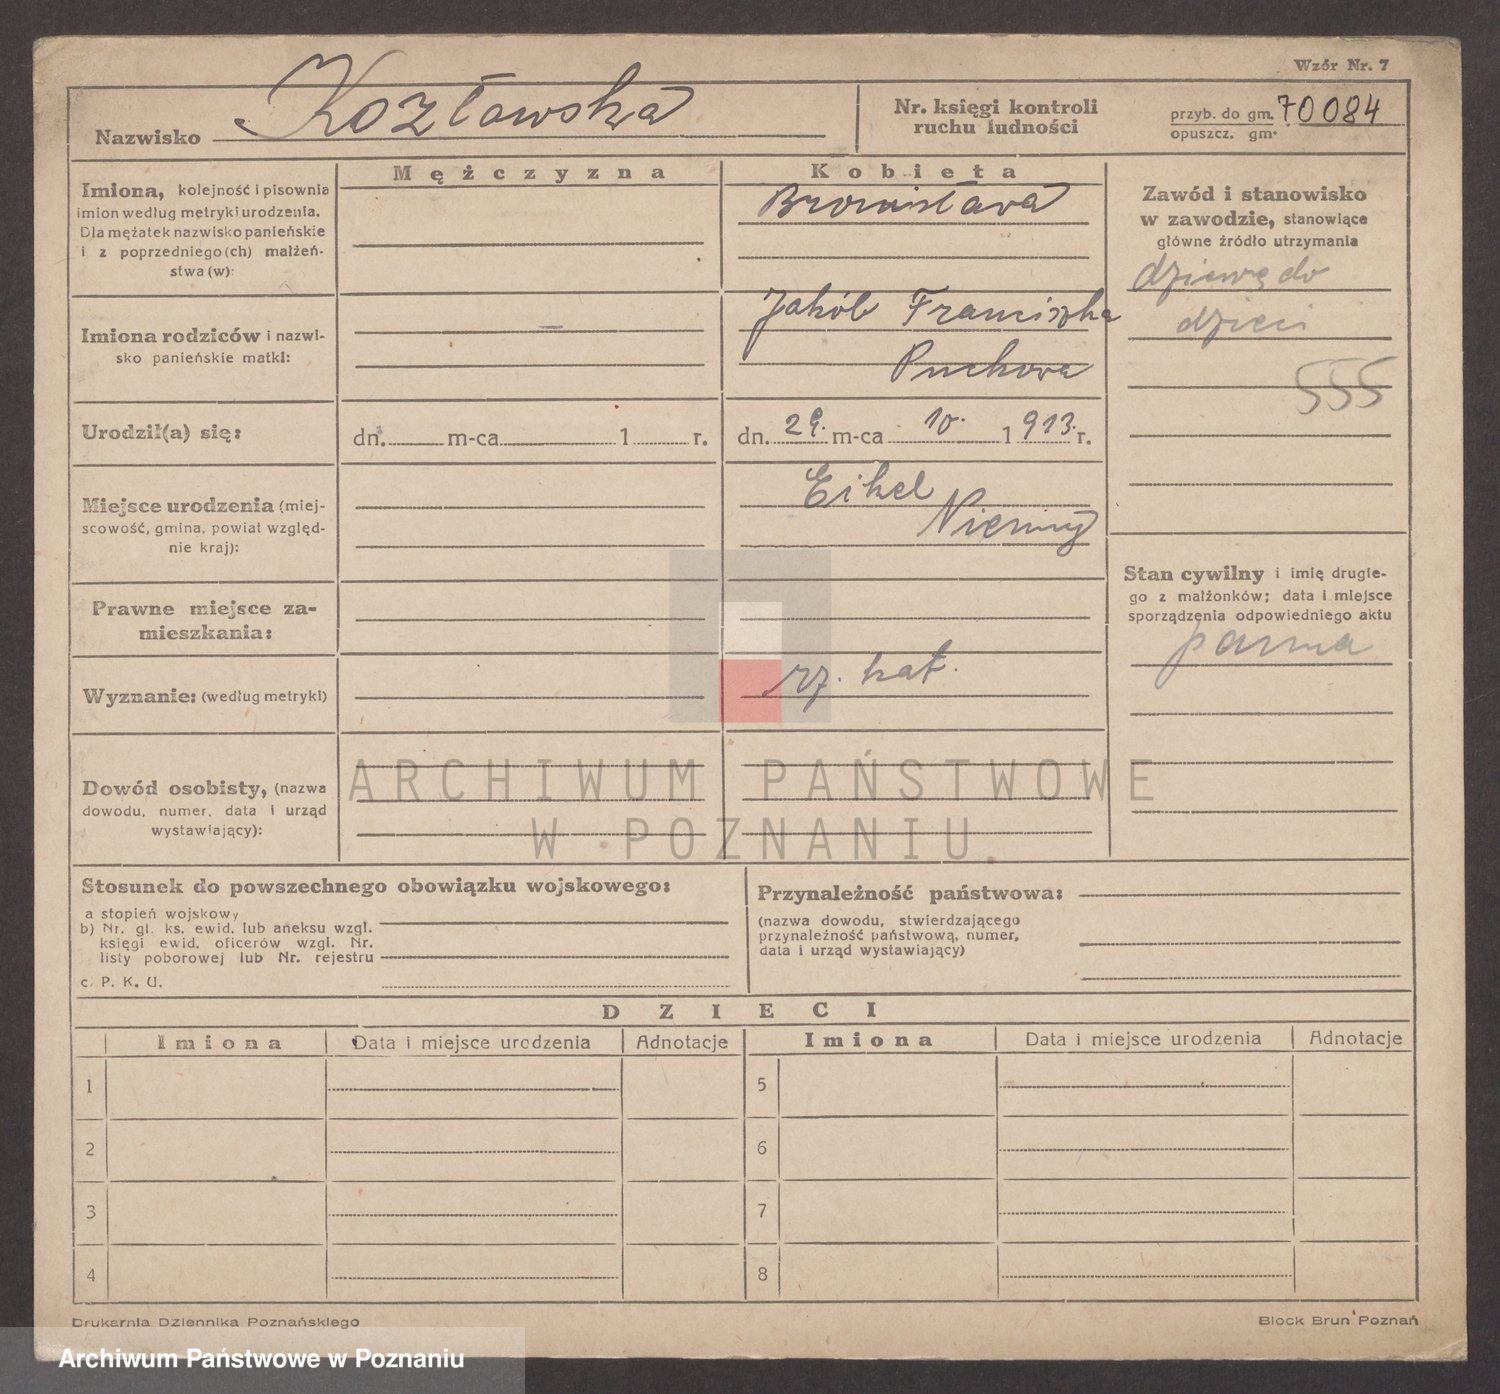 Wzór Nr. 7
Nazwisko Kozłowska
Nr. księgi kontroli
ruchu ludności
przyb. do gm. 70084
opuszcz. gm.
Mężczyzna
Kobieta
Imiona, kolejność i pisownia
imion według metryki urodzenia.
Dla mężatek nazwisko panieńskie
i z poprzedniego (ch) małżeń-
stwa (w):
Bronisława
Zawód i stanowisko
w zawodzie, stanowiące
główne źródło utrzymania
dziewę do
dzieci
555
Imiona rodziców i nazwi-
sko panieńskie matki:
Jakób Franciszka
Puchowa
Urodził(a) się:
dn. m-ca 1 r.
dn. 29. m-ca 10. 1913. r.
Miejsce urodzenia (miej-
scowość, gmina, powiat względ-
nie kraj):
Eikel
Niemcy
Prawne miejsce za-
mieszkania:
Stan cywilny i imię drugie-
go z małżonków; data i miejsce
sporządzenia odpowiedniego aktu
panna
Wyznanie: (według metryki)
rz. kat.
Dowód osobisty, (nazwa
dowodu, numer, data i urząd
wystawiający):
ARCHIWUM PAŃSTWOWE
W POZNANIU
Stosunek do powszechnego obowiązku wojskowego:
a stopień wojskowy
b) Nr. gł. ks. ewid. lub aneksu wzgl.
księgi ewid. oficerów wzgl. Nr.
listy poborowej lub Nr. rejestru
c. P. K. U.
Przynależność państwowa:
(nazwa dowodu, stwierdzającego
przynależność państwową, numer,
data i urząd wystawiający)
DZIECI
Imiona Data i miejsce urodzenia Adnotacje Imiona Data i miejsce urodzenia Adnotacje
1 5
2 6
3 7
4 8
Drukarnia Dziennika Poznańskiego
Block Brun Poznań
Archiwum Państwowe w Poznaniu